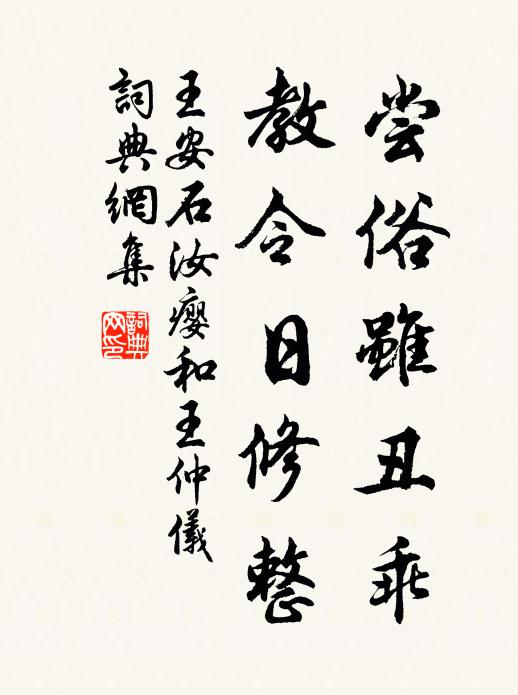 尝俗雖丑乖
教令日修整
王安石汝瘿和王仲儀
詞典網集
詞典
网印